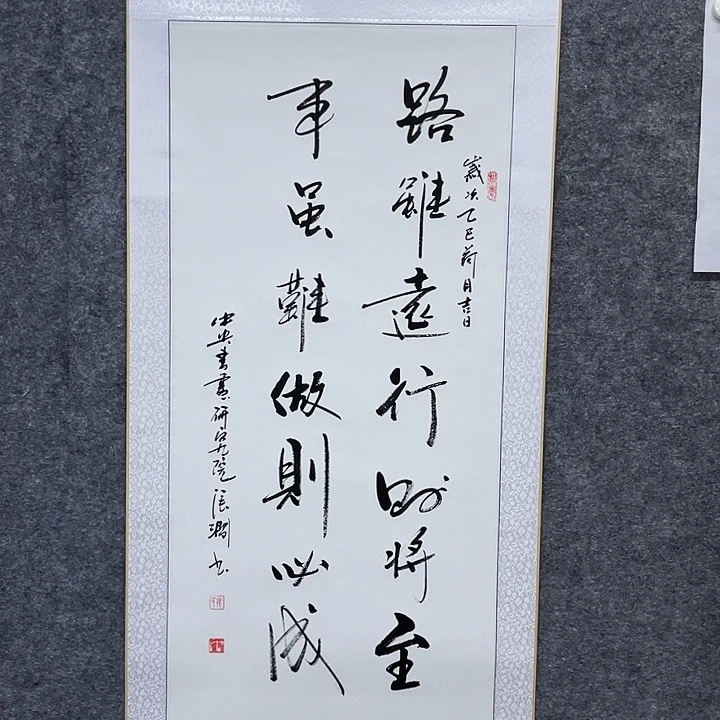 歲次乙巳荷月吉日
路雖遠行則將至
事虽難做則必成
中央書畫研究院張書